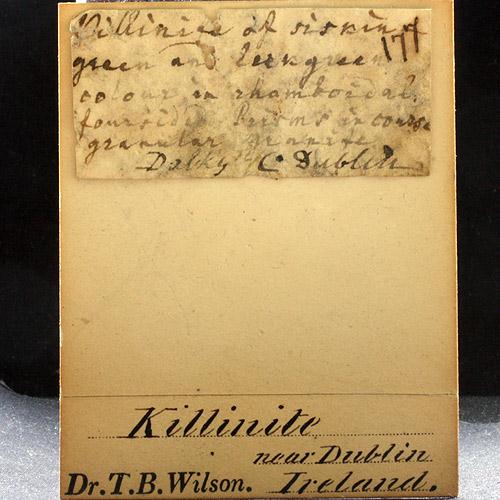 Killinite of siskin
green and leekgreen 177
colour in rhomboidal
foursided Prisms in coarse
granular granite
Dalky C Dublin
Killinite
near Dublin
Dr. T. B. Wilson. Ireland.